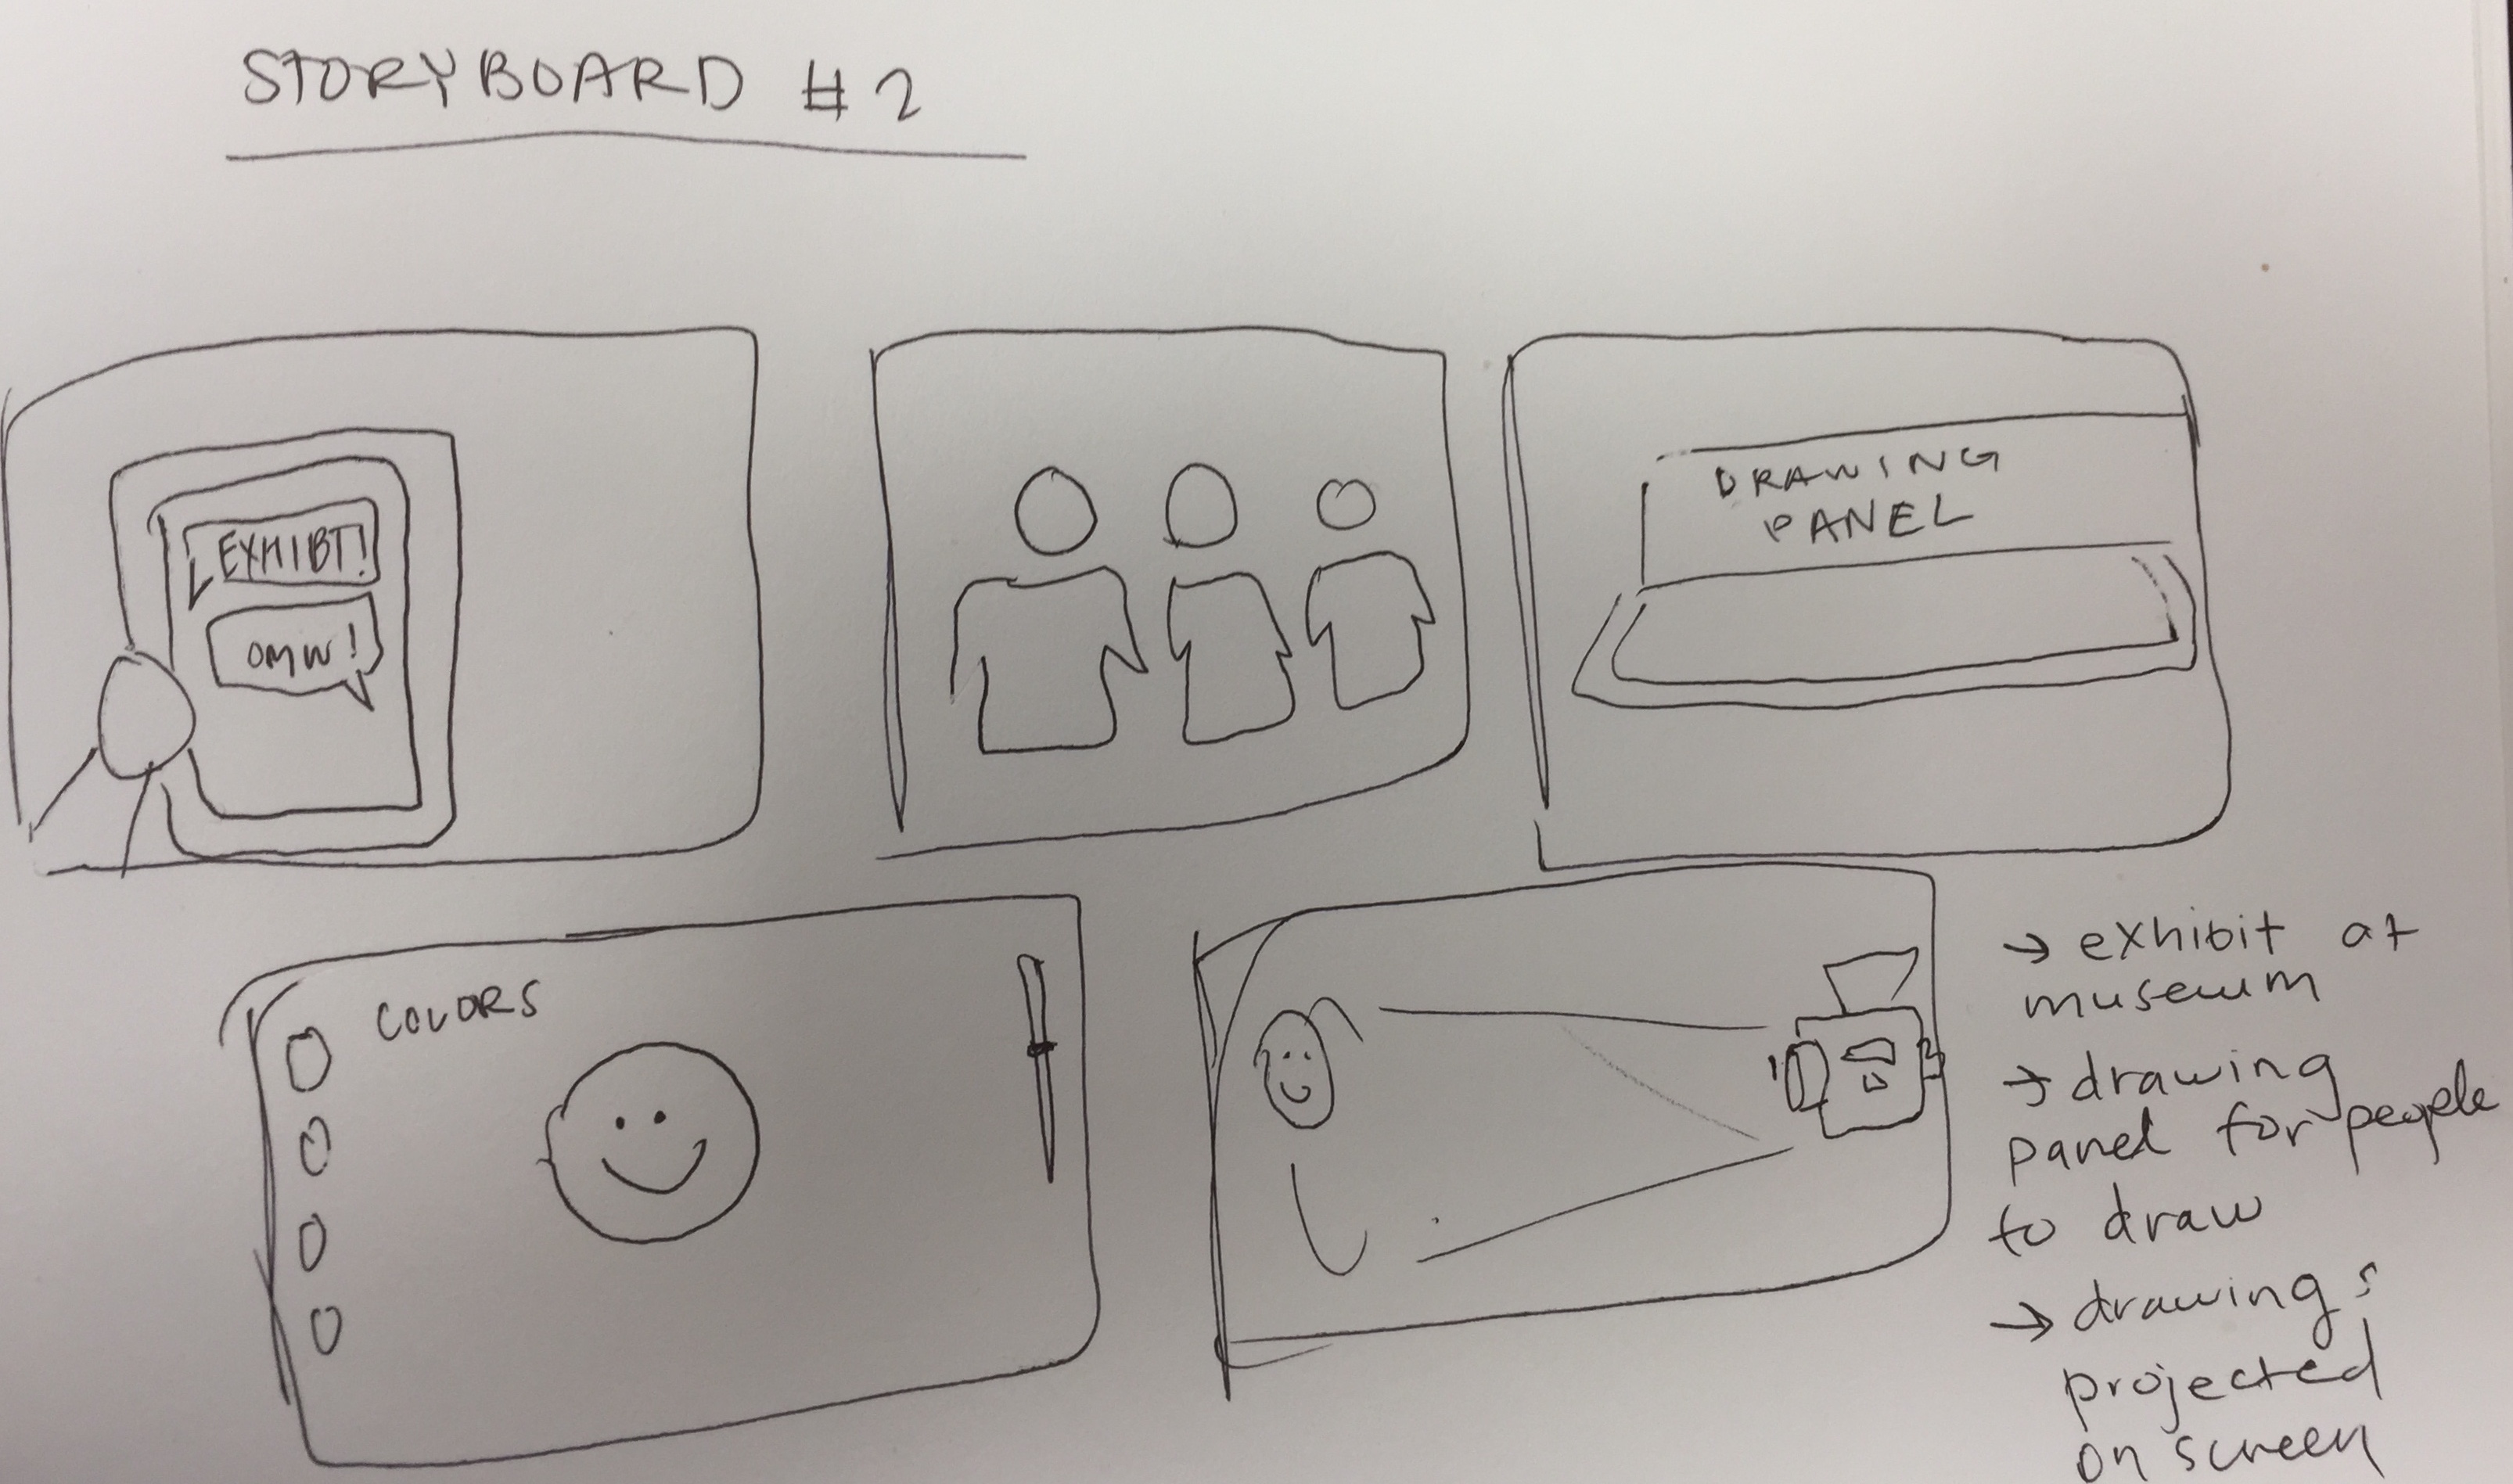 STORYBOARD #2
EXHIBT!
OMW!
DRAWING
PANEL
COLORS
→ exhibit at
museum
→ drawing
panel for people
to draw
→ drawings
projected
on screen